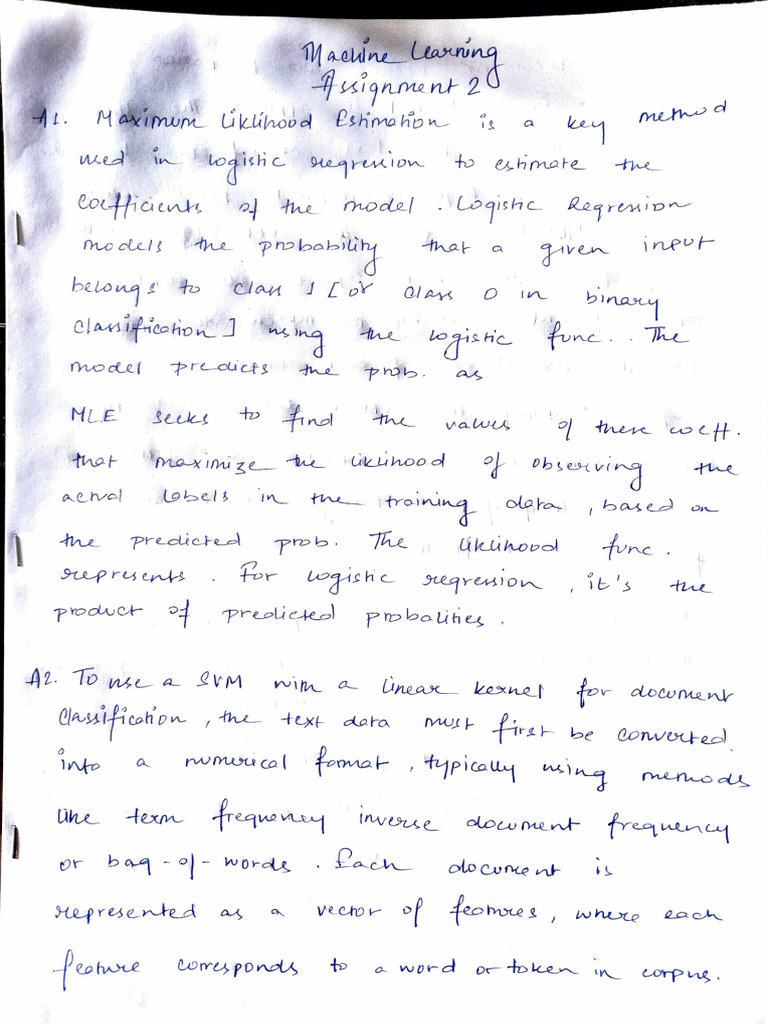 Machine Learning
Assignment 2
A1. Maximum Liklihood Estimation is a key method
used in logistic regression to estimate the
coefficients of the model. Logistic Regression
models the probability that a given input
belongs to class 1 [or class 0 in binary
classification] using the logistic func.. The
model predicts the prob. as
MLE seeks to find the values of these coeff.
that maximize the liklihood of observing the
actual labels in the training data, based on
the predicted prob. The liklihood func.
represents. For logistic regression, it's the
product of predicted probalities.
A2. To use a SVM with a linear kernel for document
classification, the text data must first be converted
into a numerical format, typically using methods
like term frequency inverse document frequency
or bag-of-words. Each document is
represented as a vector of features, where each
feature corresponds to a word or token in corpus.